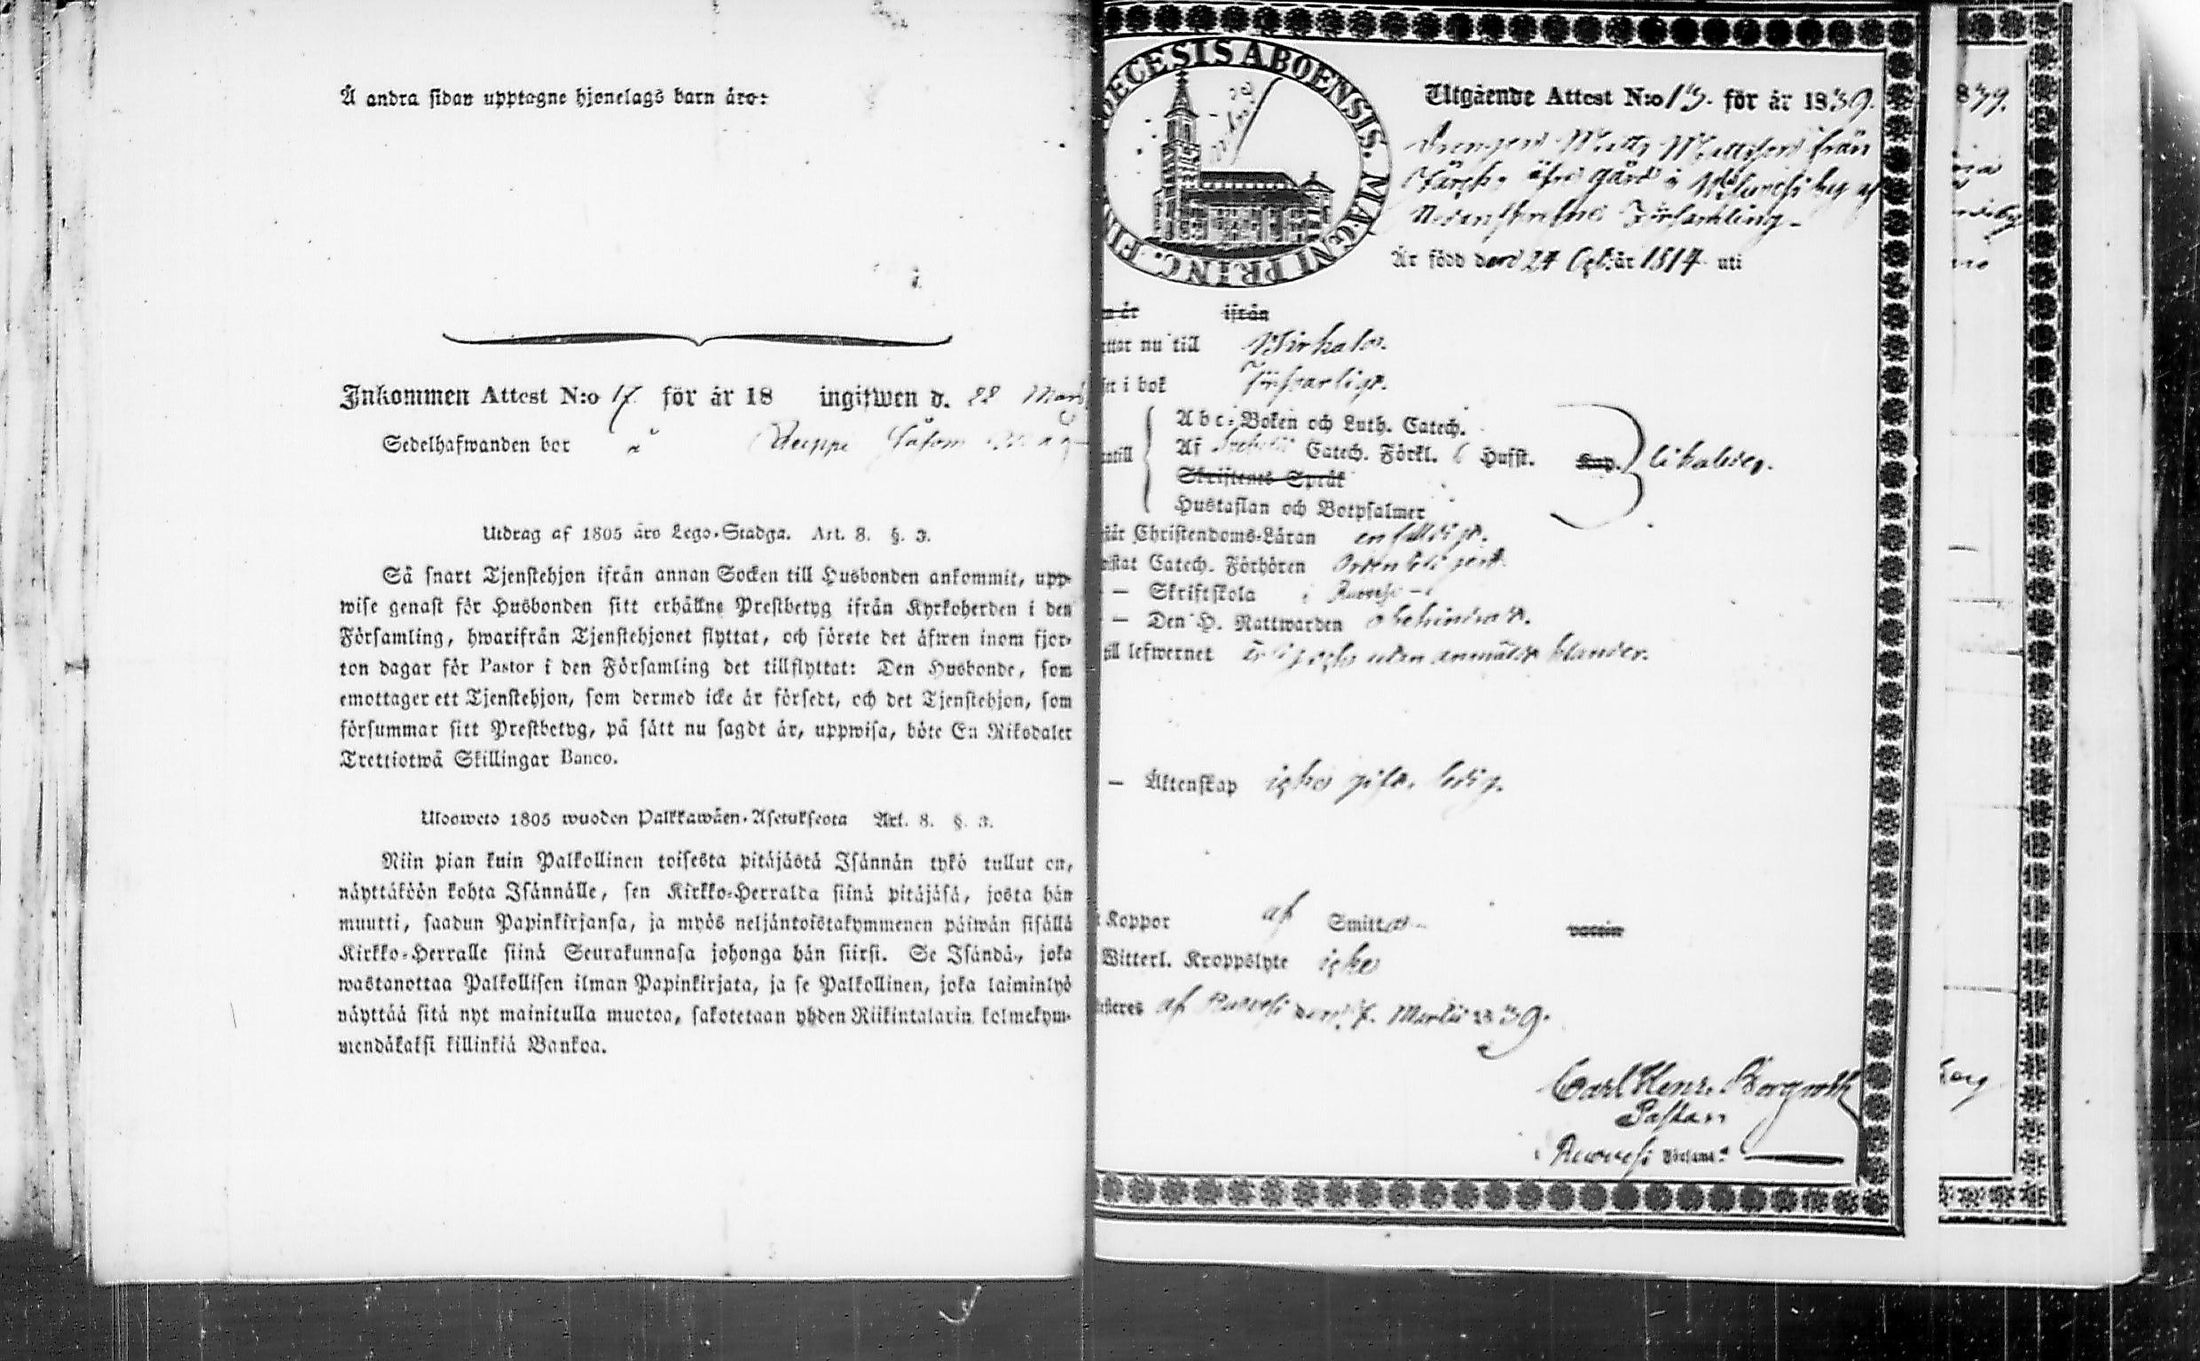 Å andra sidan upptagne hjonelags barn äro:
Inkommen Attest N:o 17 för år 18 ingifwen d. 28 Mars
Sedelhafwanden bor
Utdrag af 1805 års Lego-Stadga. Art. 8. §. 3.
Så snart Tjenstehjon ifrån annan Socken till Husbonden ankommit, upp-
wise genast för Husbonden sitt erhållne Prestbetyg ifrån Kyrkoherden i den
Församling, hwarifrån Tjenstehjonet flyttat, och förete det äfwen inom fjor-
ton dagar för Pastor i den Församling det tillflyttat: Den Husbonde, som
emottager ett Tjenstehjon, som dermed icke är försedt, och det Tjenstehjon, som
försummar sitt Prestbetyg, på sätt nu sagdt är, uppwisa, böte En Riksdaler
Trettiotwå Skillingar Banco.
Ulosweto 1805 wuoden Palkkawäen-Asetuksesta Art. 8. §. 3.
Niin pian kuin Palkollinen toisesta pitäjästä Isännän tykö tullut on,
näyttäköön kohta Isännälle, sen Kirkko-Herralda siinä pitäjäsä, josta hän
muutti, saadun Papinkirjansa, ja myös neljäntoistakymmenen päiwän sisällä
Kirkko-Herralle siinä Seurakunnasa johonga hän siirsi. Se Isändä, joka
wastanottaa Palkollisen ilman Papinkirjata, ja se Palkollinen, joka laiminlyö
näyttää sitä nyt mainitulla muotoa, sakotetaan yhden Riikintalarin kolmekym-
mendäkaksi killinkiä Bankoa.
DECESIS ABOENSIS. MAGNI PRINC. FIN
Utgående Attest N:o 13. för år 1839.
Drengen Matts Mattsson från
gård i
Församling
Är född den 24 Oct. år 1814 uti
n år ifrån
ttar nu till Wirkala.
er i bok försvarligt.
ntill
Abc-Boken och Luth. Catech.
Af Svebelii Catech. Förkl. 6 Hufst. Kap.
likaledes.
Skriftenes Språk
Hustaflan och Botpsalmer
står Christendoms-Läran enfaldigt.
istat Catech. Förhören Ordenteligen
— Skriftskola i Ruovesi
— Den H. Nattwarden obehindrad.
till lefwernet utan anmäldt klander.
— Äktenskap icke gift, ledig.
t Koppor af Smittas
vaccin
Witterl. Kroppslyte icke
steres af Ruovesi den 7. Martii 1839.
Carl Henr. Borgroth
Pastor
i Ruovesi Församl:
839.